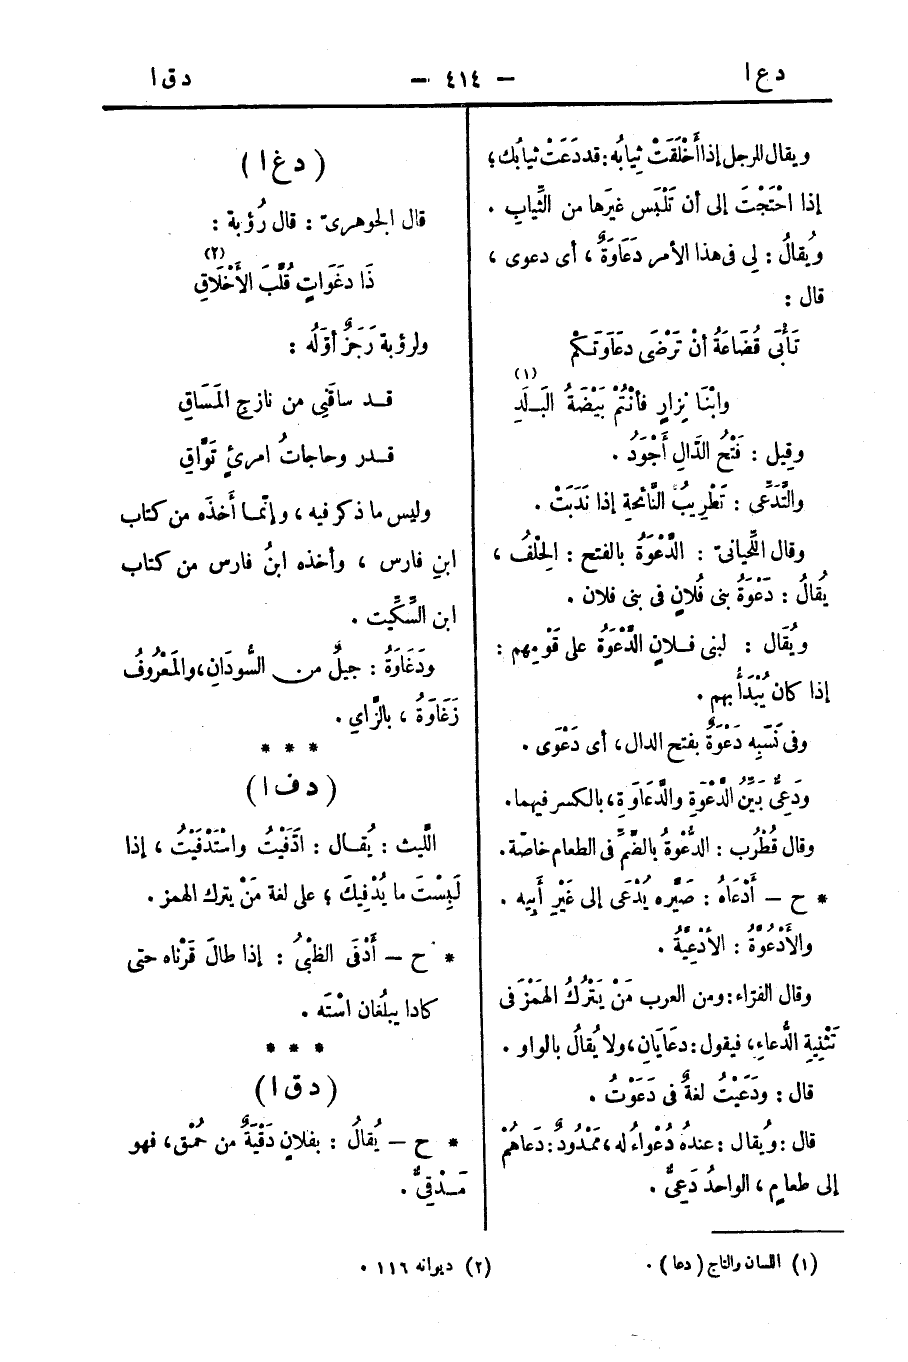 دع ا
— ٤١٤ —
دق ا
ويقال للرجل إذا أَخْلَقَتْ ثيابُه : قد دَعَتْ ثيابُك ؛
إذا احْتَجْتَ إلى أن تَلْبَس غيرَها من الثِّيابِ .
ويُقالُ : لي في هذا الأمر دَعَاوَةٌ ، أي دعوى ،
قال :
تَأْبَى قُضَاعَةُ أنْ تَرْضَى دِعَاوَتَكُمْ
وابْنَا نِزارٍ فأنْتُمْ بَيْضَةُ البَـلَدِ (١)
وقِيل : فَتْحُ الدَّالِ أَجْوَدُ .
والتَّدَعِّي : تَطْرِيبُ النَّائحةِ إذا نَدَبَتْ .
وقال اللِّحيانيّ : الدَّعْوَةُ بالفتح : الحِلْفُ ،
يُقالُ : دَعْوَةُ بني فُلانٍ في بني فلان .
ويُقَال : لبني فـلانٍ الدَّعْوَةُ على قَوْمِهم :
إذا كان يُبْدَأُ بهم .
وفي نَسَبِه دَعْوَةٌ بفتح الدال ، أي دَعْوَى .
ودَعِيٌّ بَيِّنُ الدِّعْوَةِ والدِّعَاوَةِ ، بالكسر فيهما .
وقال قُطْرُب : الدُّعْوةُ بالضَّمِّ في الطعام خاصّة .
* ح — أَدْعَاهُ : صَيَّره يُدْعَى إلى غَيْرِ أَبِيه .
والأُدْعُوَّةُ : الأُدْعِيَّةُ .
وقال الفرّاء : ومن العرب مَنْ يَتْرُكُ الهَمْزَ في
تَثْنِيةِ الدُّعاءِ ، فيقول : دعَايَانِ ، ولا يُقالُ بالواو .
قال : ودَعَيْتُ لغةٌ في دَعَوْتُ .
قال : ويُقال : عنده دُعْواءُ له ، مَمْدُودٌ : دَعَاهُمْ
إلى طعامٍ ، الواحدُ دَعِيٌّ .
(١) اللسان والتاج ( دعا ) .
( دغ ا )
قال الجوهريّ : قال رُؤبة :
ذَا دَغَوَاتٍ قُلَّبَ الأَخْلَاقِ (٢)
ولرؤبة رَجَزٌ أوّلُه :
قـد ساقَنِي من نازحِ المَسَاقِ
قـدر وحاجاتُ امرئٍ تَوَّاقِ
وليس ما ذكر فيه ، وإنّمـا أَخذَه من كتاب
ابنِ فارس ، وأخذه ابنُ فارس من كتاب
ابن السِّكِّيت .
ودَغَاوَةُ : جيلٌ من السُّودَانِ ، والمَعْرُوفُ
زَغَاوَةُ ، بالزَّاي .
* * *
( دف ا )
الَّليث : يُقـال : ادَّفَيْتُ واسْتَدْفَيْتُ ، إذا
لَبِسْتَ ما يُدْفِيكَ ؛ على لغة مَنْ يترك الهمز .
* ح — أَدْفَى الظبْيُ : إذا طالَ قَرْناه حتى
كادا يبلُغان اسْتَه .
* * *
( دق ا )
* ح — يُقالُ : بفلانٍ دَقْيَةٌ من حُمْقٍ ، فهو
مَـدْقِيٌّ .
(٢) ديوانه ١١٦ .